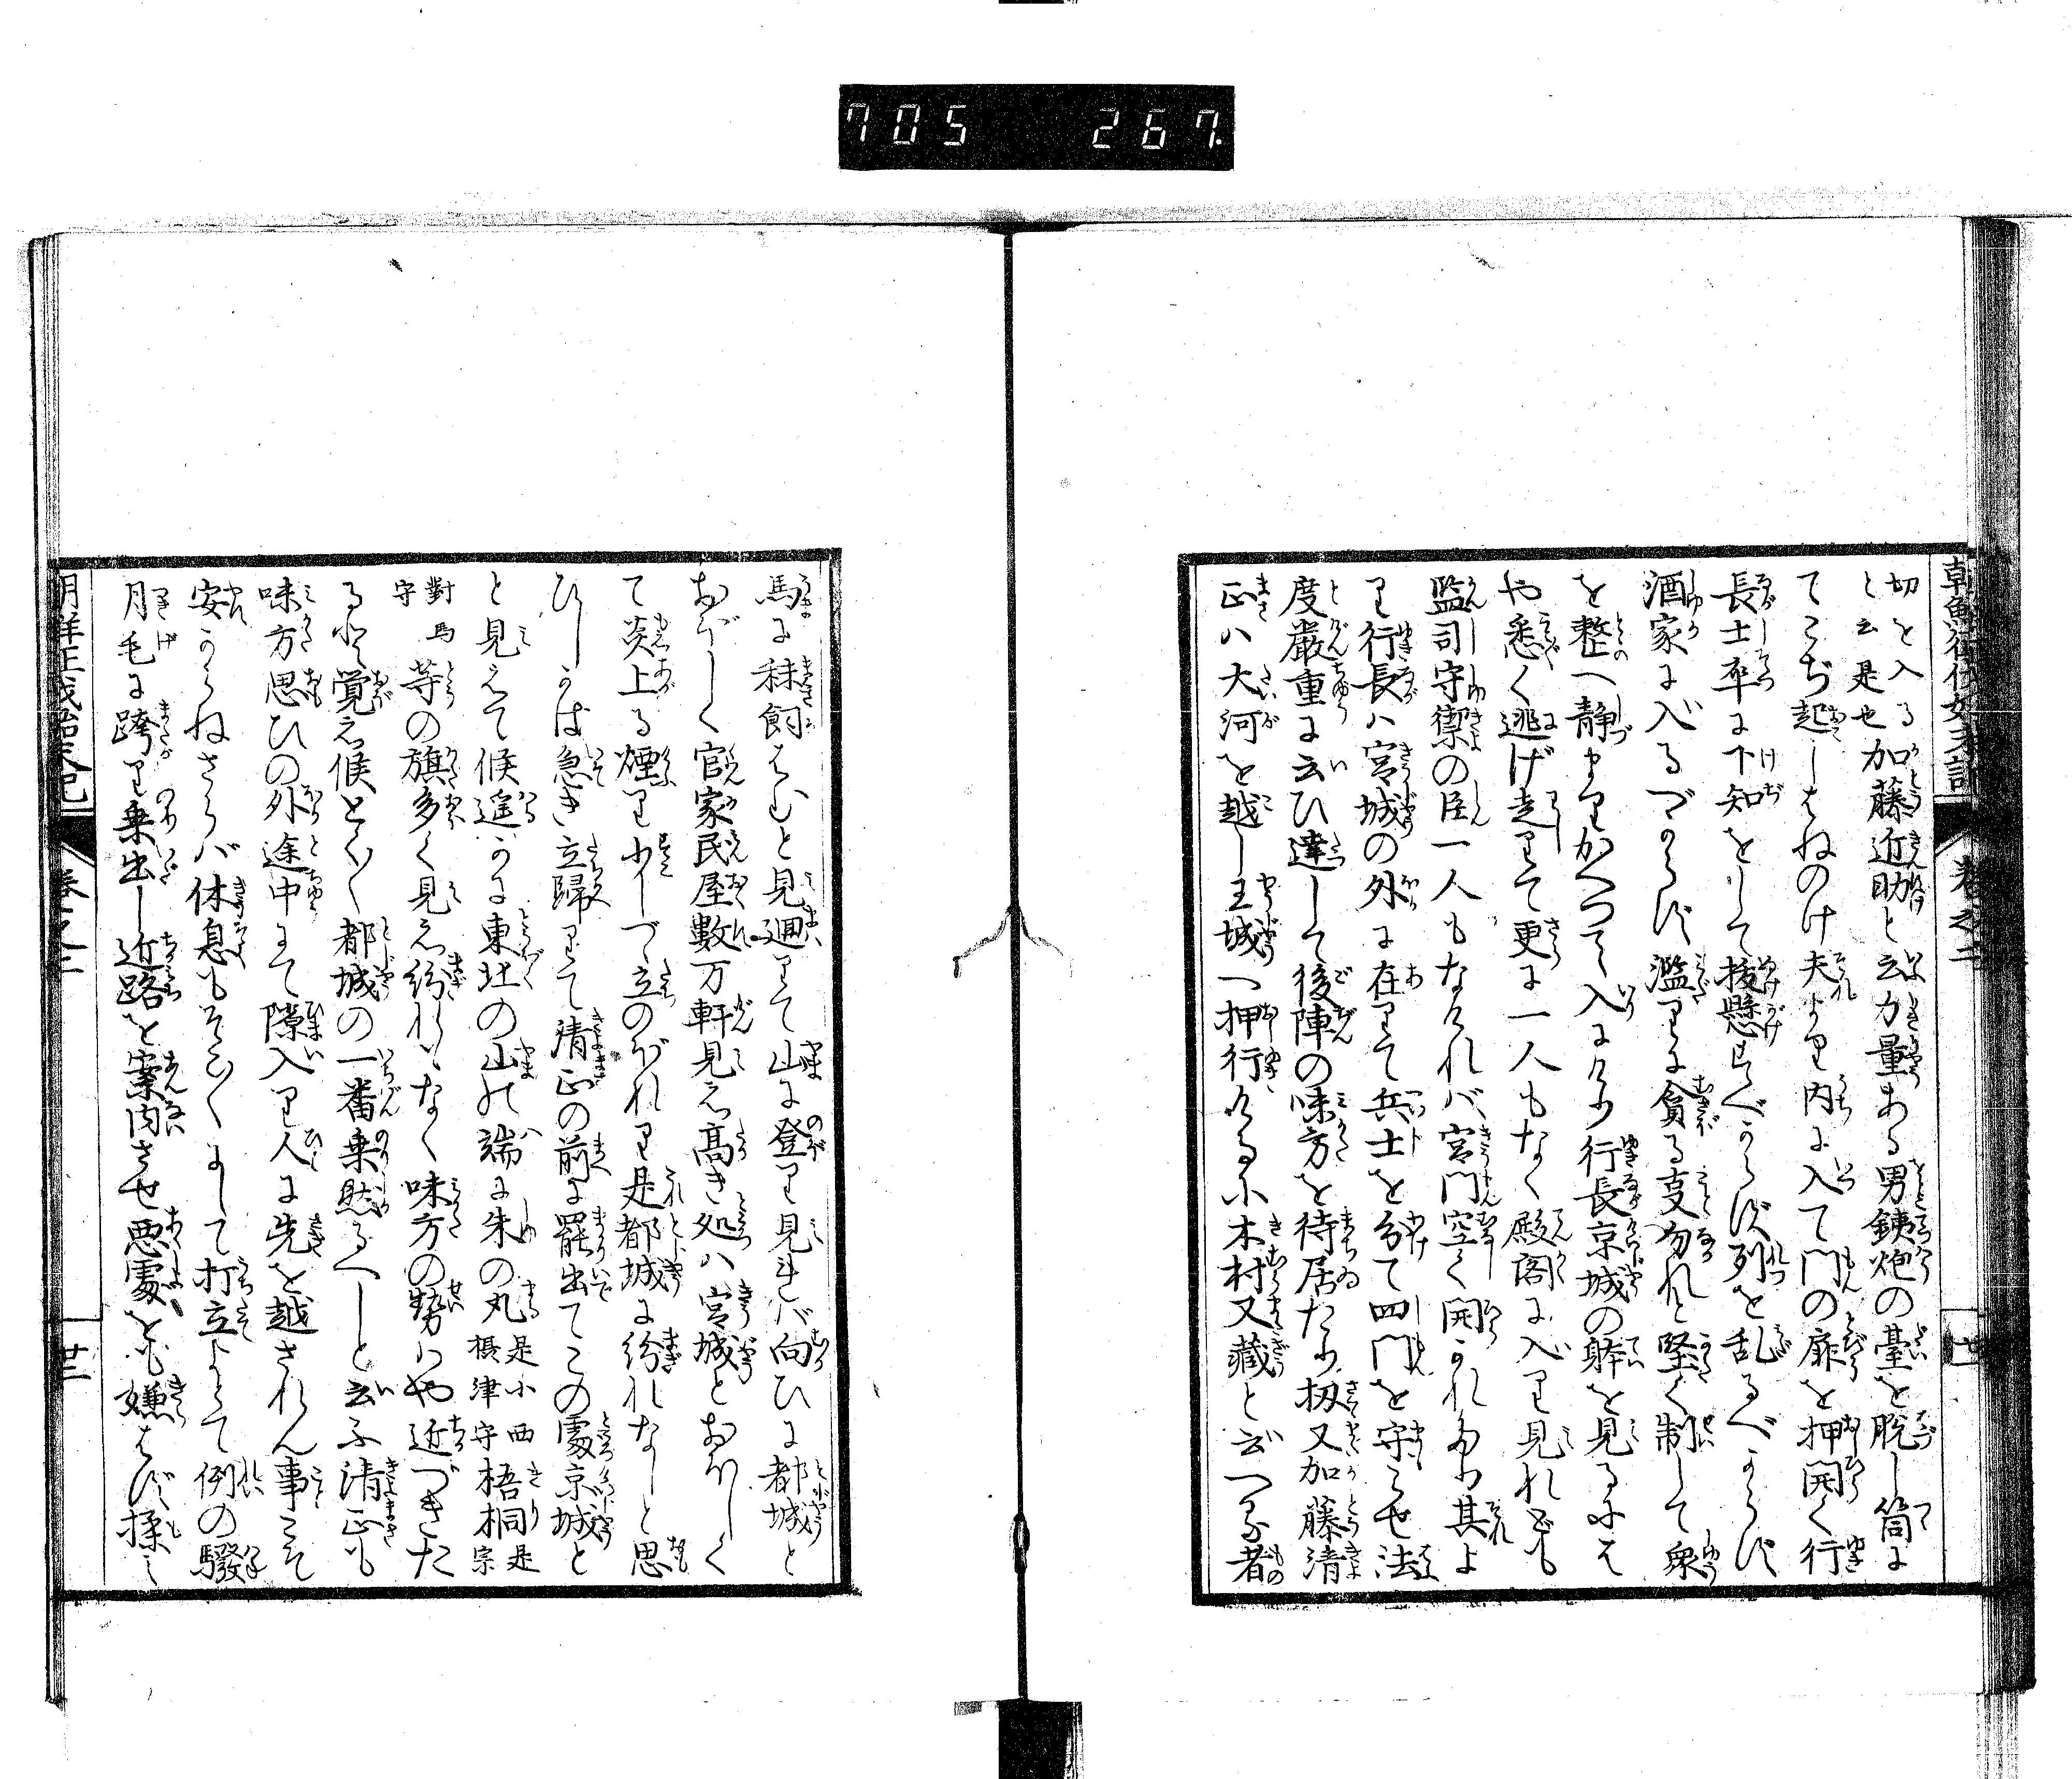 705 267.
卷之二
切を入る加藤近助と云力量ある男銕炮の臺を脱し筒に
と云是也
てこぢ起しはねのけ夫より内に入て門の扉を押開く行
長士卒に下知をして抜懸すべからず列を乱るべからず
酒家に入るべからず濫りに貪る事勿れと堅く制して衆
を整へ静まりかへつて入にけり行長京城の躰を見るには
や悉く逃げ走りて更に一人もなく殿閣に入り見れども
監司守禦の臣一人もなけれバ宮門空く開かれたり其よ
り行長ハ宮城の外に在りて兵士を分て四門を守らせ法
度嚴重に云ひ達して後陣の味方を待居たり扨又加藤清
正ハ大河を越し王城へ押行ける小木村又藏と云つる者
馬に秣飼はむと見廻りて山に登り見れバ向ひに都城と
おぼしく官家民屋數万軒見え高き処ハ宮城とおぼしく
て炎上る煙り少しづゝ立のぼれり是都城に紛れなしと思
ひしかば急き立歸りて清正の前に罷出てこの處京城と
と見えて候遙かに東北の山の端に朱の丸是小西攝津守梧桐是宗
對馬守等の旗多く見え紛れなく味方の勢はや近づきた
ると覚え候とく〳〵都城の一番乗然るべしと云ふ清正も
味方思ひの外途中にて隙入り人に先を越されん事こそ
安からねさらバ休息もそこ〳〵にして打立よとて例の驋
月毛に跨り乗出し近路を案内させ悪處をも嫌はず揉に
卷之二
廿二